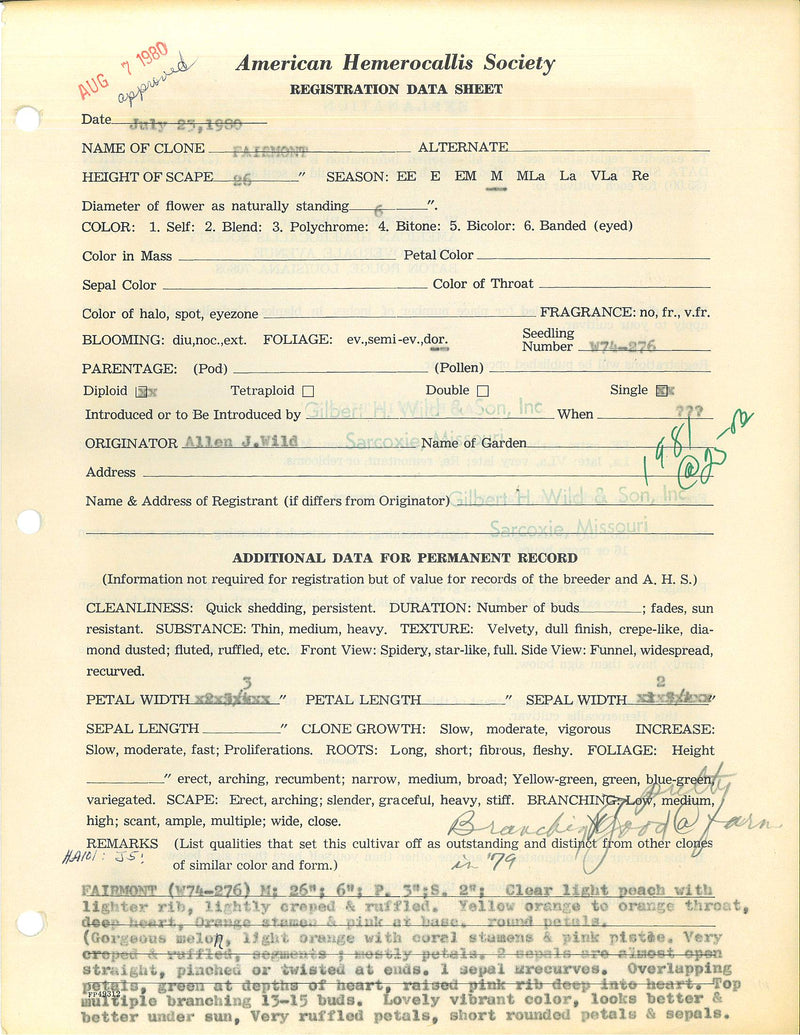 AUG 7 1980
approved
American Hemerocallis Society
REGISTRATION DATA SHEET
Date July 23,1980
NAME OF CLONE FAIRMONT ALTERNATE
HEIGHT OF SCAPE 26 " SEASON: EE E EM M MLa La VLa Re
Diameter of flower as naturally standing 6 ".
COLOR: 1. Self: 2. Blend: 3. Polychrome: 4. Bitone: 5. Bicolor: 6. Banded (eyed)
Color in Mass Petal Color
Sepal Color Color of Throat
Color of halo, spot, eyezone FRAGRANCE: no, fr., v.fr.
BLOOMING: diu,noc.,ext. FOLIAGE: ev.,semi-ev.,dor. Seedling Number W74-276
PARENTAGE: (Pod) (Pollen)
Diploid x Tetraploid Double Single x
Introduced or to Be Introduced by Gilbert H. Wild & Son, Inc When ???
Sarcoxie, Missouri
ORIGINATOR Allen J.Wild Name of Garden
1981 @25-00
Address
Name & Address of Registrant (if differs from Originator) Gilbert H. Wild & Son, Inc.
Sarcoxie, Missouri
ADDITIONAL DATA FOR PERMANENT RECORD
(Information not required for registration but of value for records of the breeder and A. H. S.)
CLEANLINESS: Quick shedding, persistent. DURATION: Number of buds ; fades, sun
resistant. SUBSTANCE: Thin, medium, heavy. TEXTURE: Velvety, dull finish, crepe-like, dia-
mond dusted; fluted, ruffled, etc. Front View: Spidery, star-like, full. Side View: Funnel, widespread,
recurved.
3 2
PETAL WIDTH x2x3/4xx " PETAL LENGTH " SEPAL WIDTH x1x3/4xx"
SEPAL LENGTH " CLONE GROWTH: Slow, moderate, vigorous INCREASE:
Slow, moderate, fast; Proliferations. ROOTS: Long, short; fibrous, fleshy. FOLIAGE: Height
" erect, arching, recumbent; narrow, medium, broad; Yellow-green, green, blue-green,
variegated. SCAPE: Erect, arching; slender, graceful, heavy, stiff. BRANCHING: Low, medium,
high; scant, ample, multiple; wide, close.
pretty
Branching Good @ farm
in '79
REMARKS (List qualities that set this cultivar off as outstanding and distinct from other clones
of similar color and form.)
FAIRMONT (W74-276) M; 26"; 6"; P. 3";S. 2"; Clear light peach with
lighter rib, lightly creped & ruffled. Yellow orange to orange throat,
deep heart, Orange stamen & pink at base. round petals.
(Gorgeous melon, light orange with coral stamens & pink pistle. Very
creped & ruffled, segments ; mostly petals. 2 sepals are almost open
straight, pinched or twisted at ends. 1 sepal urecurves. Overlapping
petals, green at depths of heart, raised pink rib deep into heart. Top
multiple branching 13-15 buds. Lovely vibrant color, looks better &
better under sun, Very ruffled petals, short rounded petals & sepals.